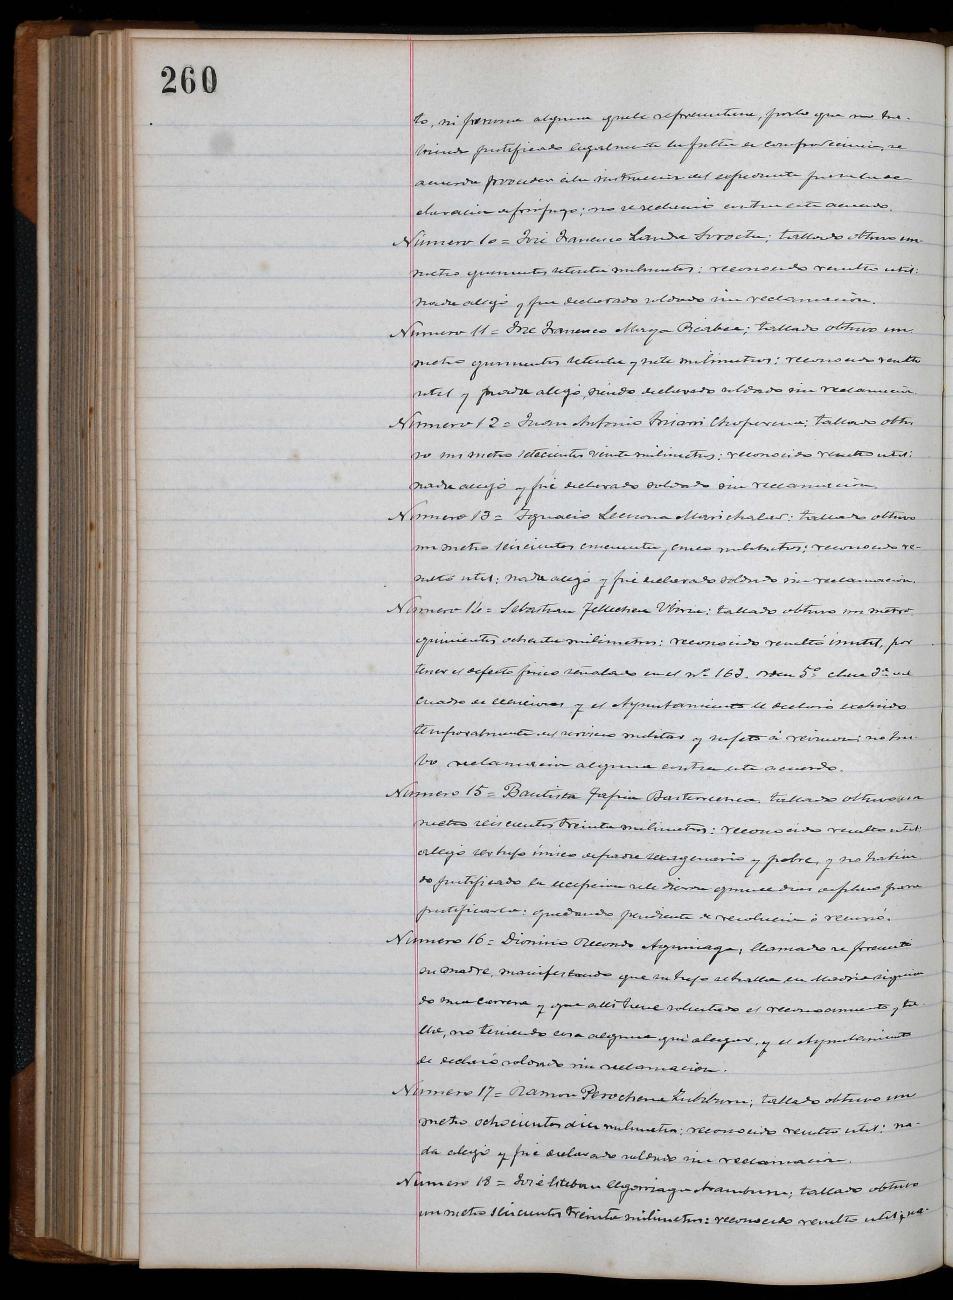 260
to, ni persona alguna que le represente, por lo que no ha-
biendo justificado legalmente su falta de comparecencia, se
acuerda proceder á la instrucción del expediente para la de-
claración de prófugo; no se reclamó contra este acuerdo.
Número 10 = José Francisco; tallado obtuvo un
metro quinientos setenta milímetros: reconocido resultó util:
nada alegó y fue declarado soldado sin reclamación.
Número 11 = José Francisco Maya; tallado obtuvo un
metro quinientos setenta y siete milímetros: reconocido resultó
util y nada alegó, siendo declarado soldado sin reclamación.
Número 12 = Juan Antonio Iriarri Choperena; tallado obtu-
vo un metro setecientos veinte milímetros; reconocido resultó util:
nada alegó y fué declarado soldado sin reclamación.
Número 13 = Ignacio Lecuona Marichalar: tallado obtuvo
un metro seiscientos cincuenta y cinco milímetros: reconocido re-
sultó util: nada alegó y fué declarado soldado sin reclamación.
Número 14 = Sebastian Tellechea: tallado obtuvo un metro
quinientos ochenta milímetros: reconocido resultó inutil, por
tener el defecto fisico señalado en el nº 163. orden 5º clase 3ª del
cuadro de exenciones y el Ayuntamiento le declaró excluido
temporalmente del servicio militar y sujeto á revision: no hu-
bo reclamación alguna contra este acuerdo.
Número 15 = Bautista; tallado obtuvo un
metro seiscientos treinta milímetros: reconocido resultó util:
alegó ser hijo único de padre sexagenario y pobre, y no habien-
do justificado la excepcion se le dieron quince dias de plazo para
justificarla: quedando pendiente de resolucion ó recurso.
Número 16 = Dionisio Recondo Aguinaga; llamado se presentó
su madre, manifestando que su hijo se halla en Madrid siguien-
do una carrera y que allí tiene solicitado el reconocimiento y ta-
lla, no teniendo cosa alguna que alegar, y el Ayuntamiento
le declaró soldado sin reclamación.
Número 17 = Ramon Perochena; tallado obtuvo un
metro ochocientos diez milímetros; reconocido resultó util: na-
da alegó y fué declarado soldado sin reclamación.
Número 18 = José Esteban Elgorriaga Aramburu; tallado obtuvo
un metro seiscientos treinta milímetros: reconocido resultó util; na-